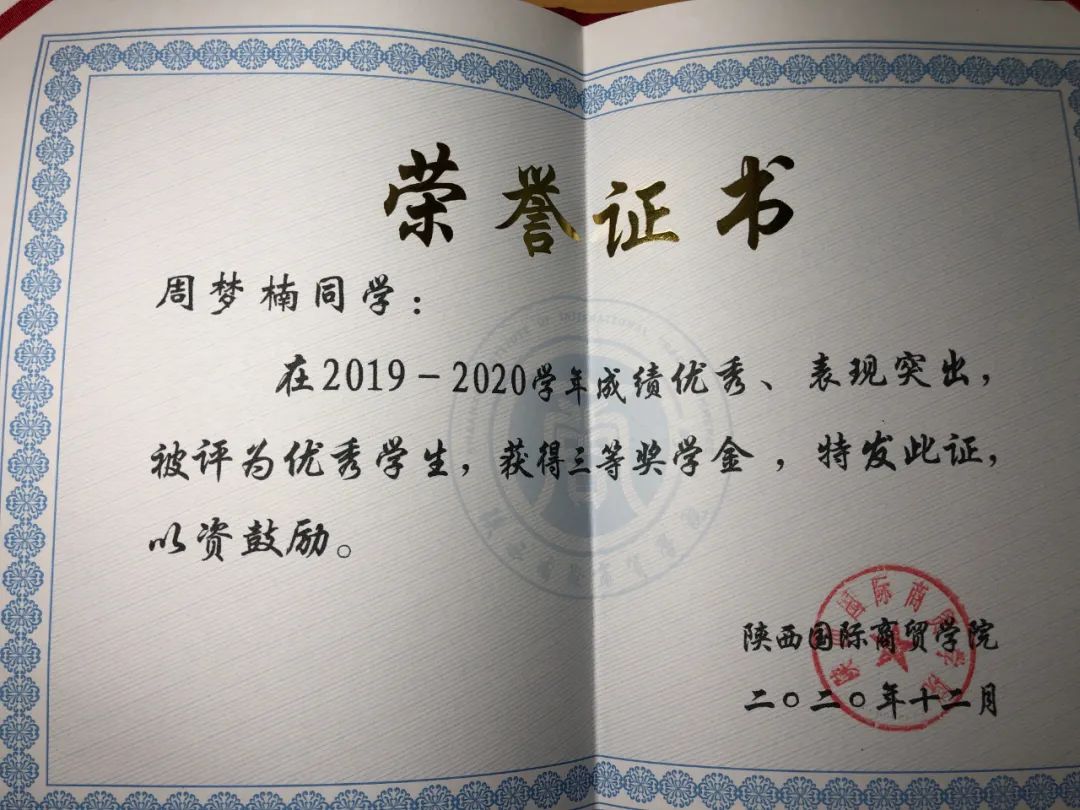 荣誉证书
周梦楠同学：
在2019－2020学年成绩优秀、表现突出，
被评为优秀学生，获得三等奖学金，特发此证，
以资鼓励。
陕西国际商贸学院
二〇二〇年十二月